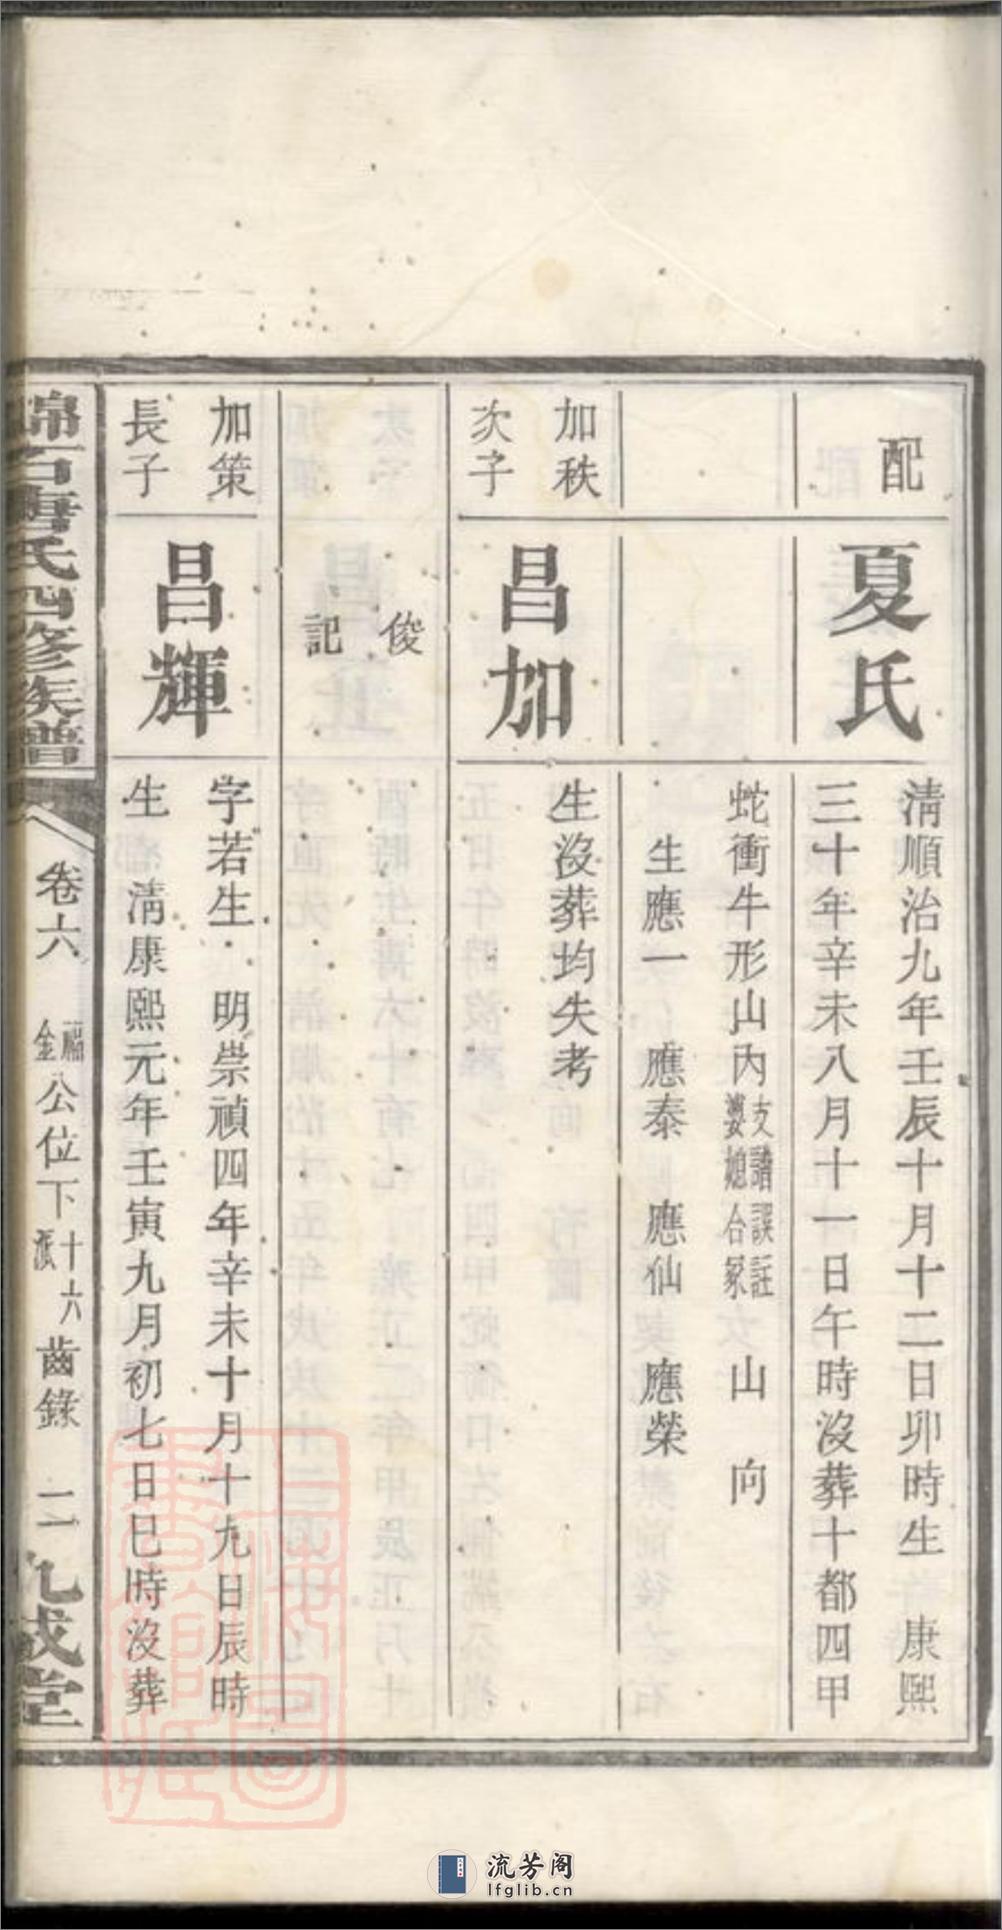 配
夏氏
清順治九年壬辰十月十二日卯時生　康熙
三十年辛未八月十一日午時沒葬十都四甲
蛇衝牛形山內支譜誤註婆媳合冢　山　向
生應一　應泰　應仙　應榮
加秩
次子
昌加
生沒葬均失考
俊
記
加策
長子
昌輝
字若生　明崇禎四年辛未十月十九日辰時
生　清康熙元年壬寅九月初七日巳時沒葬
錦石唐氏四修族譜
卷六　福金公位下十六派齒錄　二　九成堂
上海圖書館藏
流芳阁
lfglib.cn